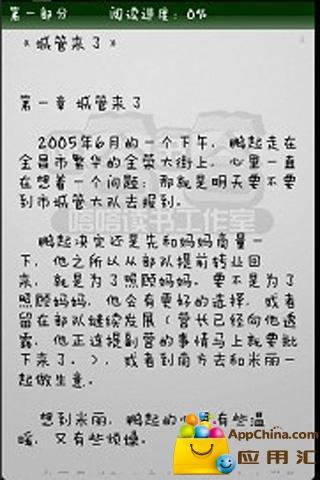 第一部分 阅读进度:0%
《城管来了》
第一章 城管来了
2005年6月的一个下午,鹏起走在
金昌市繁华的金荣大街上,心里一直
在想着一个问题:那就是明天要不要
到市城管大队去报到。
哈哈读书工作室
鹏起决定还是先和妈妈商量一
下,他之所以从部队提前转业回
来,就是为了照顾妈妈,要不是为了
照顾妈妈,他会有更好的选择,或者
留在部队继续发展(营长已经向他透
露,他正连提副营的事情马上就要批
下来了。),或者到南方去和米丽一
起做生意。
想到米丽,鹏起的心里有些温
暖,又有些烦燥。
AppChina.com
应用汇